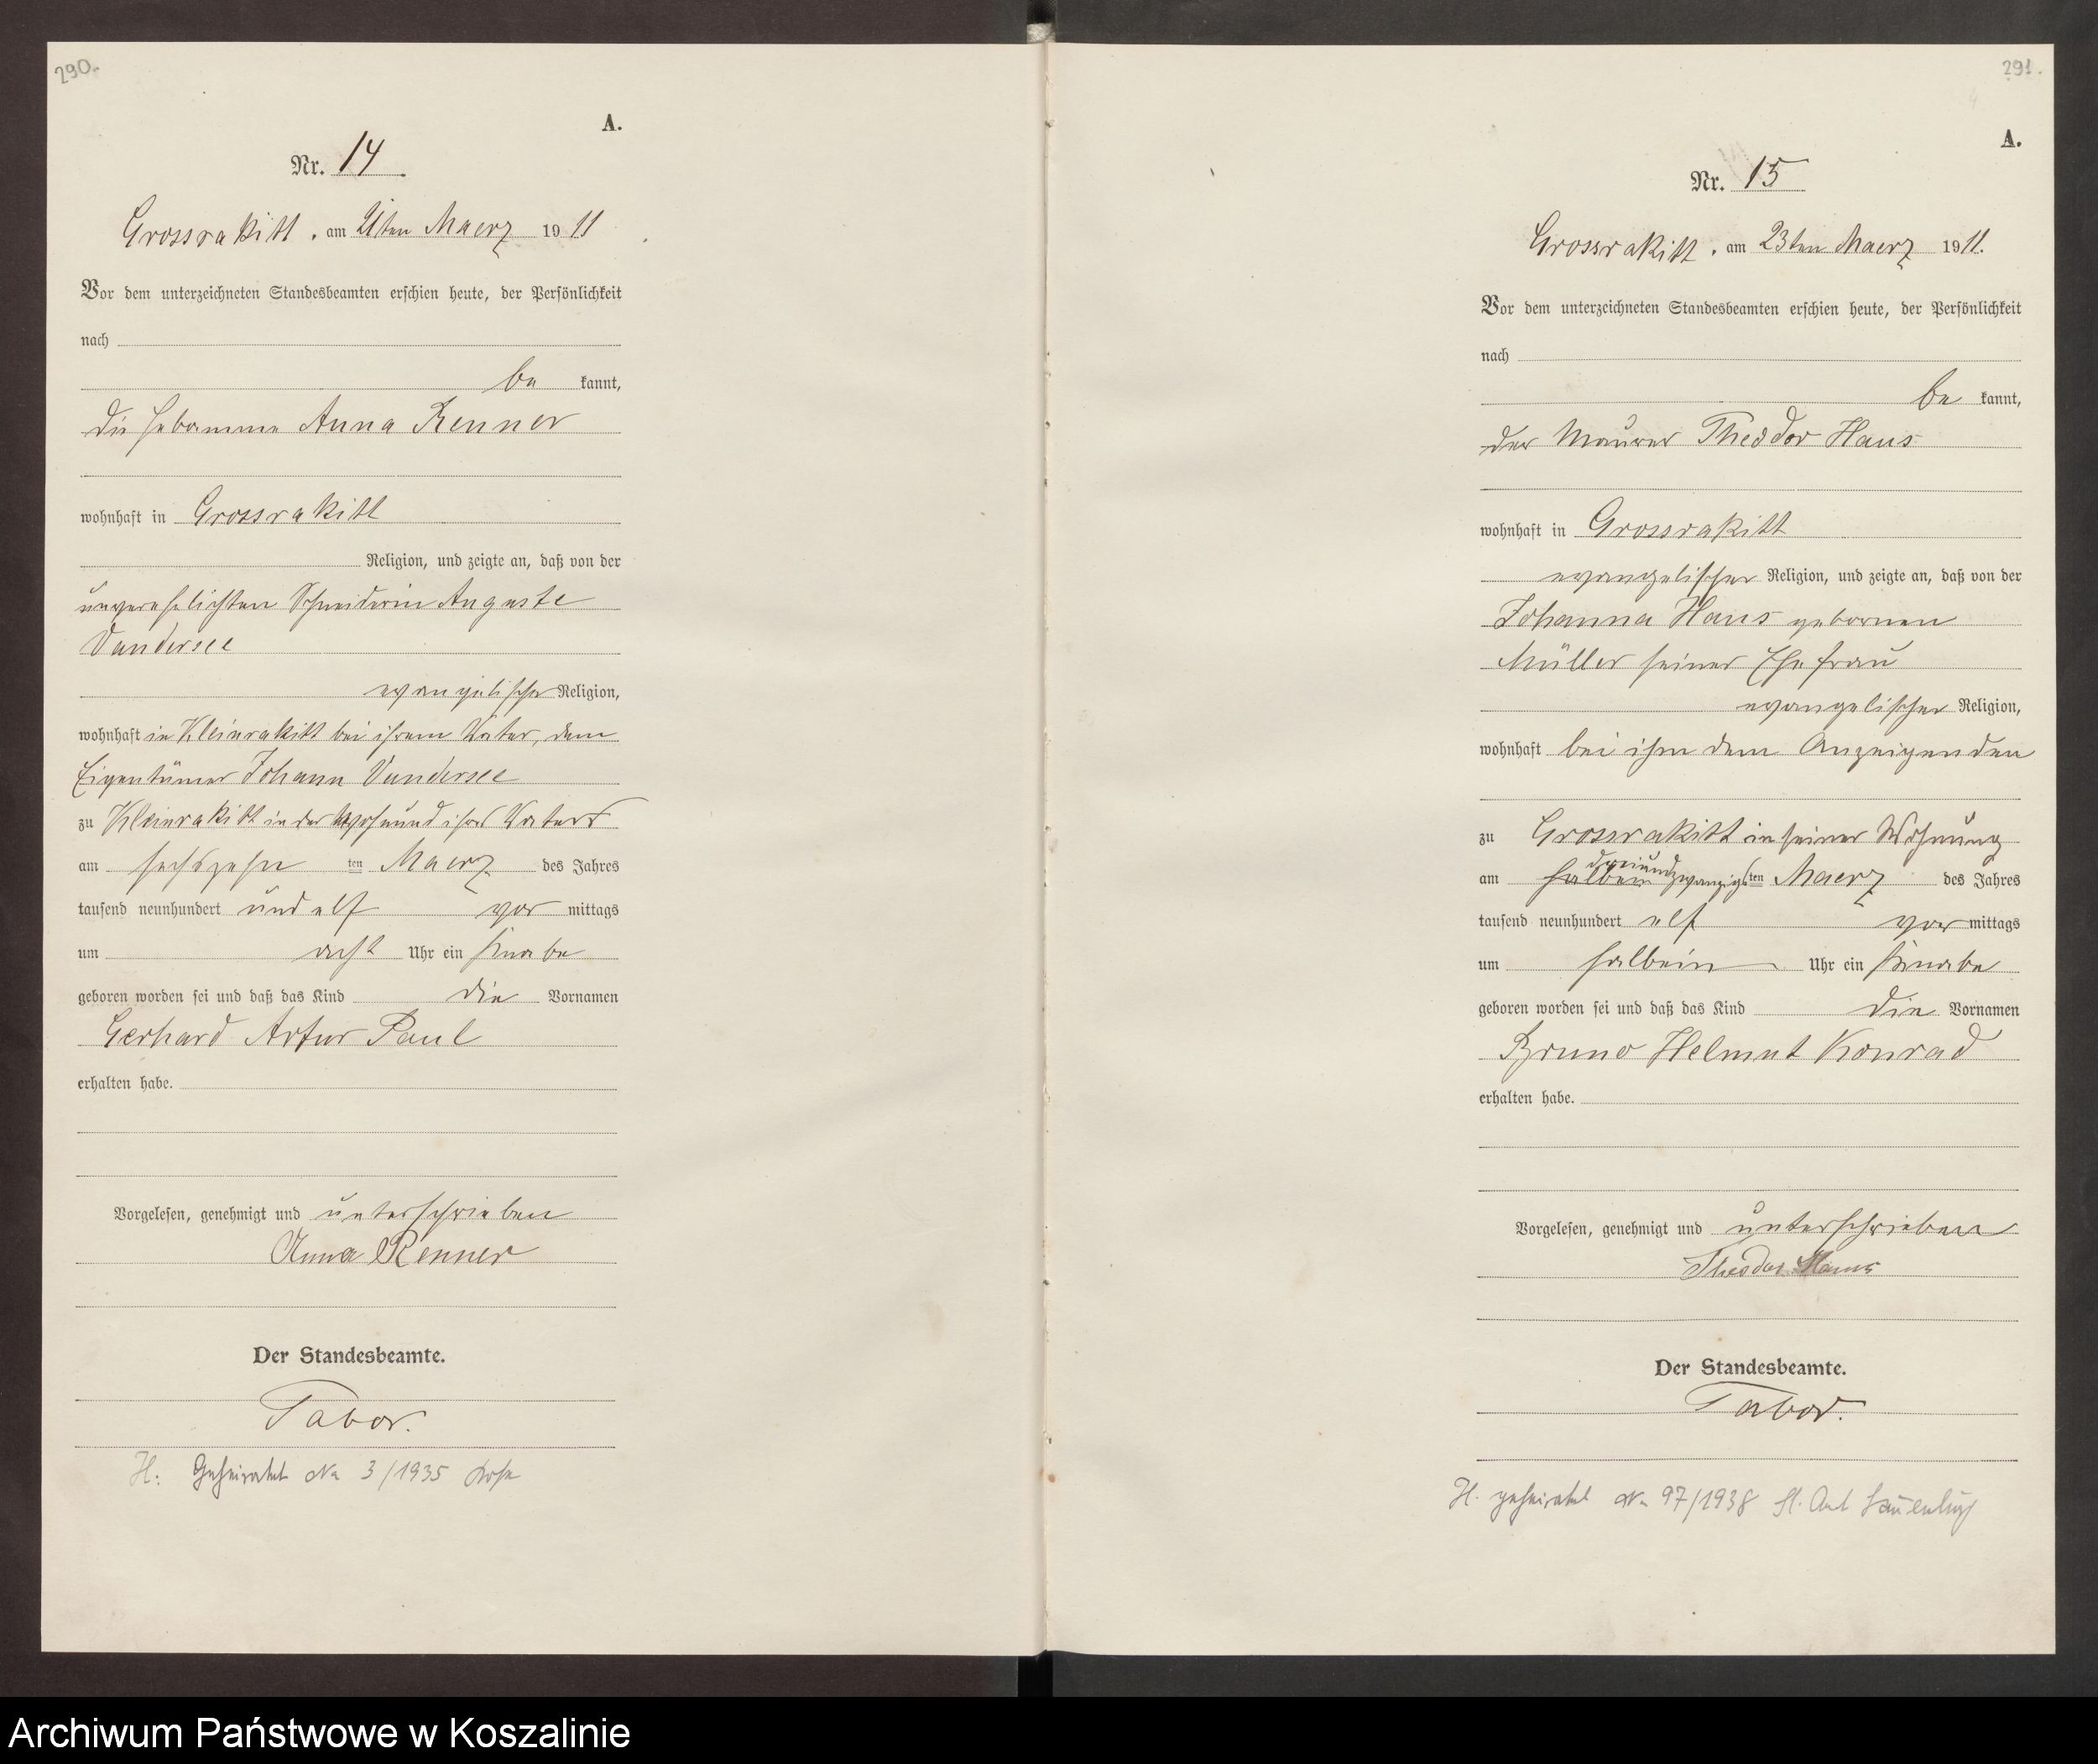 290.
A.
Nr. 14
Grossrakitt, am 21ten Maerz 1911
Vor dem unterzeichneten Standesbeamten erschien heute, der Persönlichkeit
nach
be kannt,
die Hebamme Anna Renner
wohnhaft in Grossrakitt
Religion, und zeigte an, daß von der
unverehelichten Schneiderin Auguste
Vandersee
evangelischer Religion,
wohnhaft in Kleinrakitt bei ihrem Vater, dem
Eigentümer Johann Vandersee
zu Kleinrakitt in der Wohnung ihres Vaters
am sechszehn ten Maerz des Jahres
tausend neunhundert und elf vor mittags
um acht Uhr ein Knabe
geboren worden sei und daß das Kind die Vornamen
Gerhard Artur Paul
erhalten habe.
Vorgelesen, genehmigt und unterschrieben
Anna Renner
Der Standesbeamte.
Tabor.
H: Geheiratet No 3/1935
291.
A.
Nr. 15
Grossrakitt, am 23ten Maerz 1911.
Vor dem unterzeichneten Standesbeamten erschien heute, der Persönlichkeit
nach
be kannt,
der Maurer Theodor Haus
wohnhaft in Grossrakitt
evangelischer Religion, und zeigte an, daß von der
Johanna Haus gebornen
Müller seiner Ehefrau
evangelischer Religion,
wohnhaft bei ihm dem Anzeigenden
zu Grossrakitt in seiner Wohnung
am halbein dreiundzwanzigsten Maerz des Jahres
tausend neunhundert elf vor mittags
um halbein Uhr ein Knabe
geboren worden sei und daß das Kind die Vornamen
Bruno Helmut Konrad
erhalten habe.
Vorgelesen, genehmigt und unterschrieben
Theodor Haus
Der Standesbeamte.
Tabor.
H. geheiratet No 97/1938 St. Amt Lauenburg
Archiwum Państwowe w Koszalinie